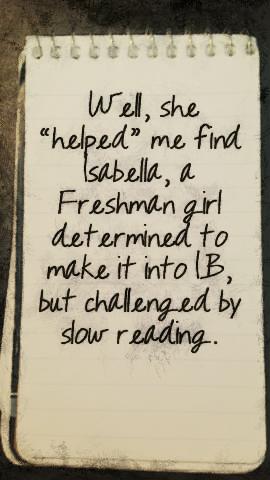 Well, she
“helped” me find
Isabella, a
Freshman girl
determined to
make it into IB,
but challenged by
slow reading.